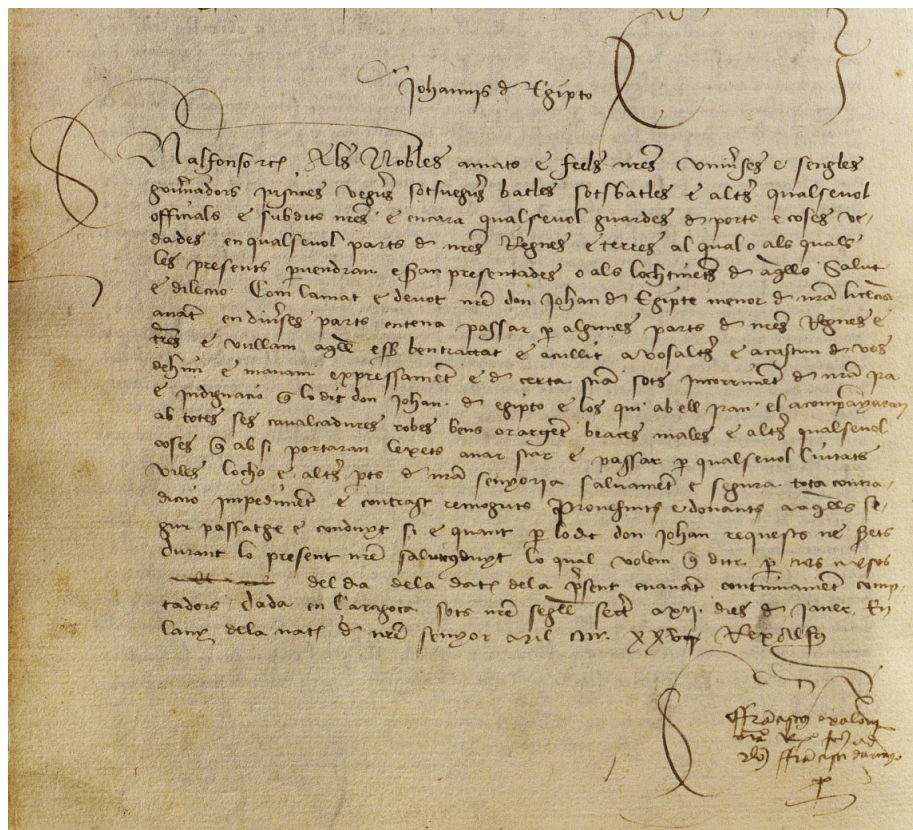 Johannis d Egipto
N alfonso etc. Als Nobles amats e feels nres universes e sengles
governadors justicies veguers sotsveguers batles sotsbatles e altres qualsevol
officials e subdits nres e encara qualsevol guardes d ports e coses ve-
dades en qualsevol parts d nres Regnes e terres al qual o als quals
les presents pervendran e seran presentades o als lochtinents d aqlls Salut
e dileccio. Com lamat e devot nre don Johan d Egipte menor d nra licencia
anant en diverses parts entena passar p algunes parts d nres Regnes e
terres e vullam aqll esser ben tractat e acullit a vosaltres e a cascun d vos
dehim e manam expressament e d certa sciencia sots incorriment d nra ira
e indignacio q lo dit don Johan d egipto e los qui ab ell iran e l acompanyaran
ab totes ses cavalcadures robes bens or argent beaces males e altres qualsevol
coses q ab si portaran lexets anar star e passar p qualsevol Ciutats
viles lochs e altres parts d nra senyoria salvament e segura tota contra-
diccio impediment e contrast remoguts Provehints e donants a aqlls se-
gur passatge e conduyt si e quant p lo dit don Johan requests ne serets
durant lo present nre salconduyt lo qual volem q dur p tres mesos
del dia dela dat dela present enavant continuament comp-
tadors. Dada en Caragoça sots nre segell secret a XII dies d Janer En
lany dela nat d nre senyor Mil CCCC XXV Rex Alfs
ffranciscus